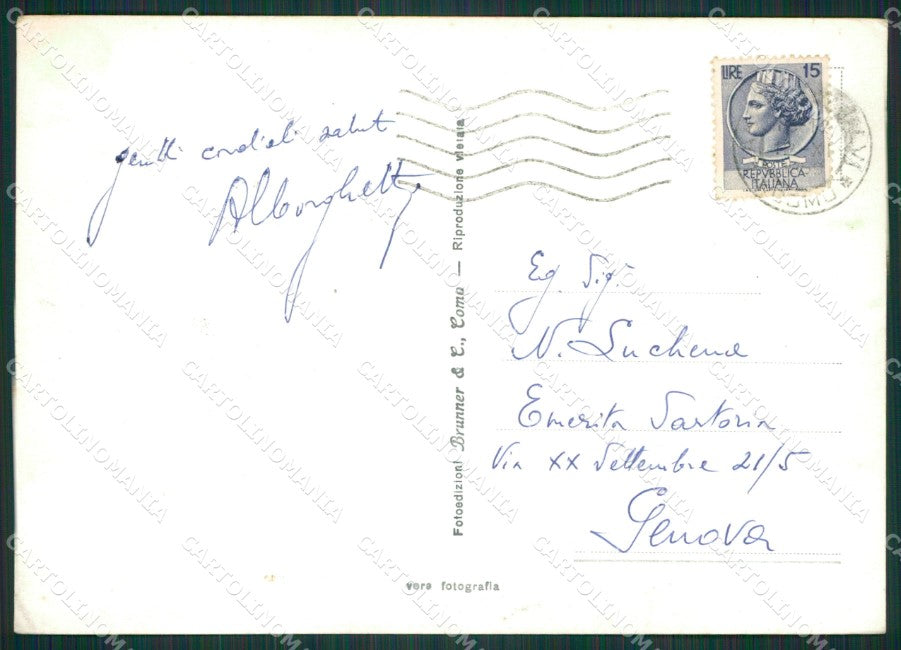 LIRE 15
POSTE
REPVBBLICA
ITALIANA
cordiali saluti
Alborghetti
Fotoedizioni Brunner & C., Como — Riproduzione vietata
Eg. Sig.
N. Luchena
Emerita Sartoria
Via XX Settembre 21/5
Genova
vera fotografia
CARTOLINOMANIA